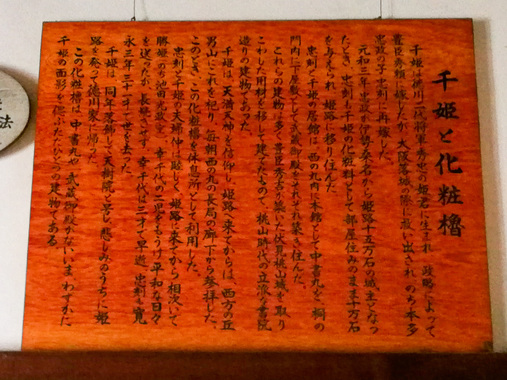 千姫と化粧櫓
千姫は徳川二代将軍秀忠の姫君に生まれ、政略によって
豊臣秀頼に嫁したが、大阪落城の際に救い出され、のち本多
忠政の子忠刻に再嫁した。
元和三年忠政が伊勢桑名から姫路十五万石の城主になっ
たとき、忠刻も千姫の化粧料として部屋住みのまま十万石
を与えられ、姫路に移り住んだ。
忠刻と千姫の居館は、西の丸内に本館として中書丸を、桐の
門内に下屋敷として武蔵野御殿をそれぞれ築き住んだ。
これらの建物は多く豊臣秀吉が築いた伏見桃山城を取り
こわした用材を移して建てたもので、桃山時代の立派な書院
造りの建物であった。
千姫は、天満天神を信仰し、姫路へ来てからは、西方の丘
男山にこれを祀り、毎朝西の丸の長局の廊下から拝した。
このとき、この化粧櫓を休息所として利用した。
忠刻と千姫の夫婦仲は睦じく、姫路に来てから相次いで
勝姫(のち池田光政室)幸千代の二児をもうけ平和な日々
を送ったが、長続きせず、幸千代は三才で早逝、忠刻も寛
永三年三十一才で世を去った。
千姫は、同年落飾して天樹院と号し、悲しみのうちに姫
路を発って徳川家に帰った。
この化粧櫓は、中書丸や武蔵野御殿がないいま、わずかに
千姫の面影を偲ぶただひとつの建物である。
法